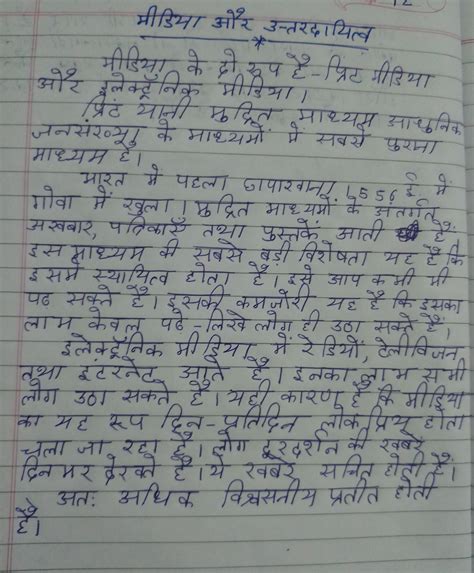 12
मीडिया और उत्तरदायित्व
मीडिया के दो रूप है - प्रिंट मीडिया
और इलेक्ट्रॉनिक मीडिया।
प्रिंट यानी मुद्रित माध्यम आधुनिक
जनसंख्या के माध्यमों में सबसे पुराना
माध्यम है।
भारत में पहला छापाखाना 1556 ई में
गोवा में खुला। मुद्रित माध्यमों के अंतर्गत
अखबार, पत्रिकाएँ तथा पुस्तकें आती है
इस माध्यम की सबसे बड़ी विशेषता यह है कि
इसमें स्थायित्व होता है। इसे आप कभी भी
पढ सकते है। इसकी कमजोरी यह है कि इसका
लाभ केवल पढे-लिखे लोग ही उठा सकते है।
इलेक्ट्रॉनिक मीडिया में रेडियों, टेलीविजन
तथा इंटरनेट आते है। इनका लाभ सभी
लोग उठा सकते है। यही कारण है कि मीडिया
का यह रूप दिन-प्रतिदिन लोकप्रिय होता
चला जा रहा है। लोग दूरदर्शन की खबरें
दिन भर देखते है। ये खबरें सचित्र होती है।
अतः अधिक विश्वसनीय प्रतीत होती
है।